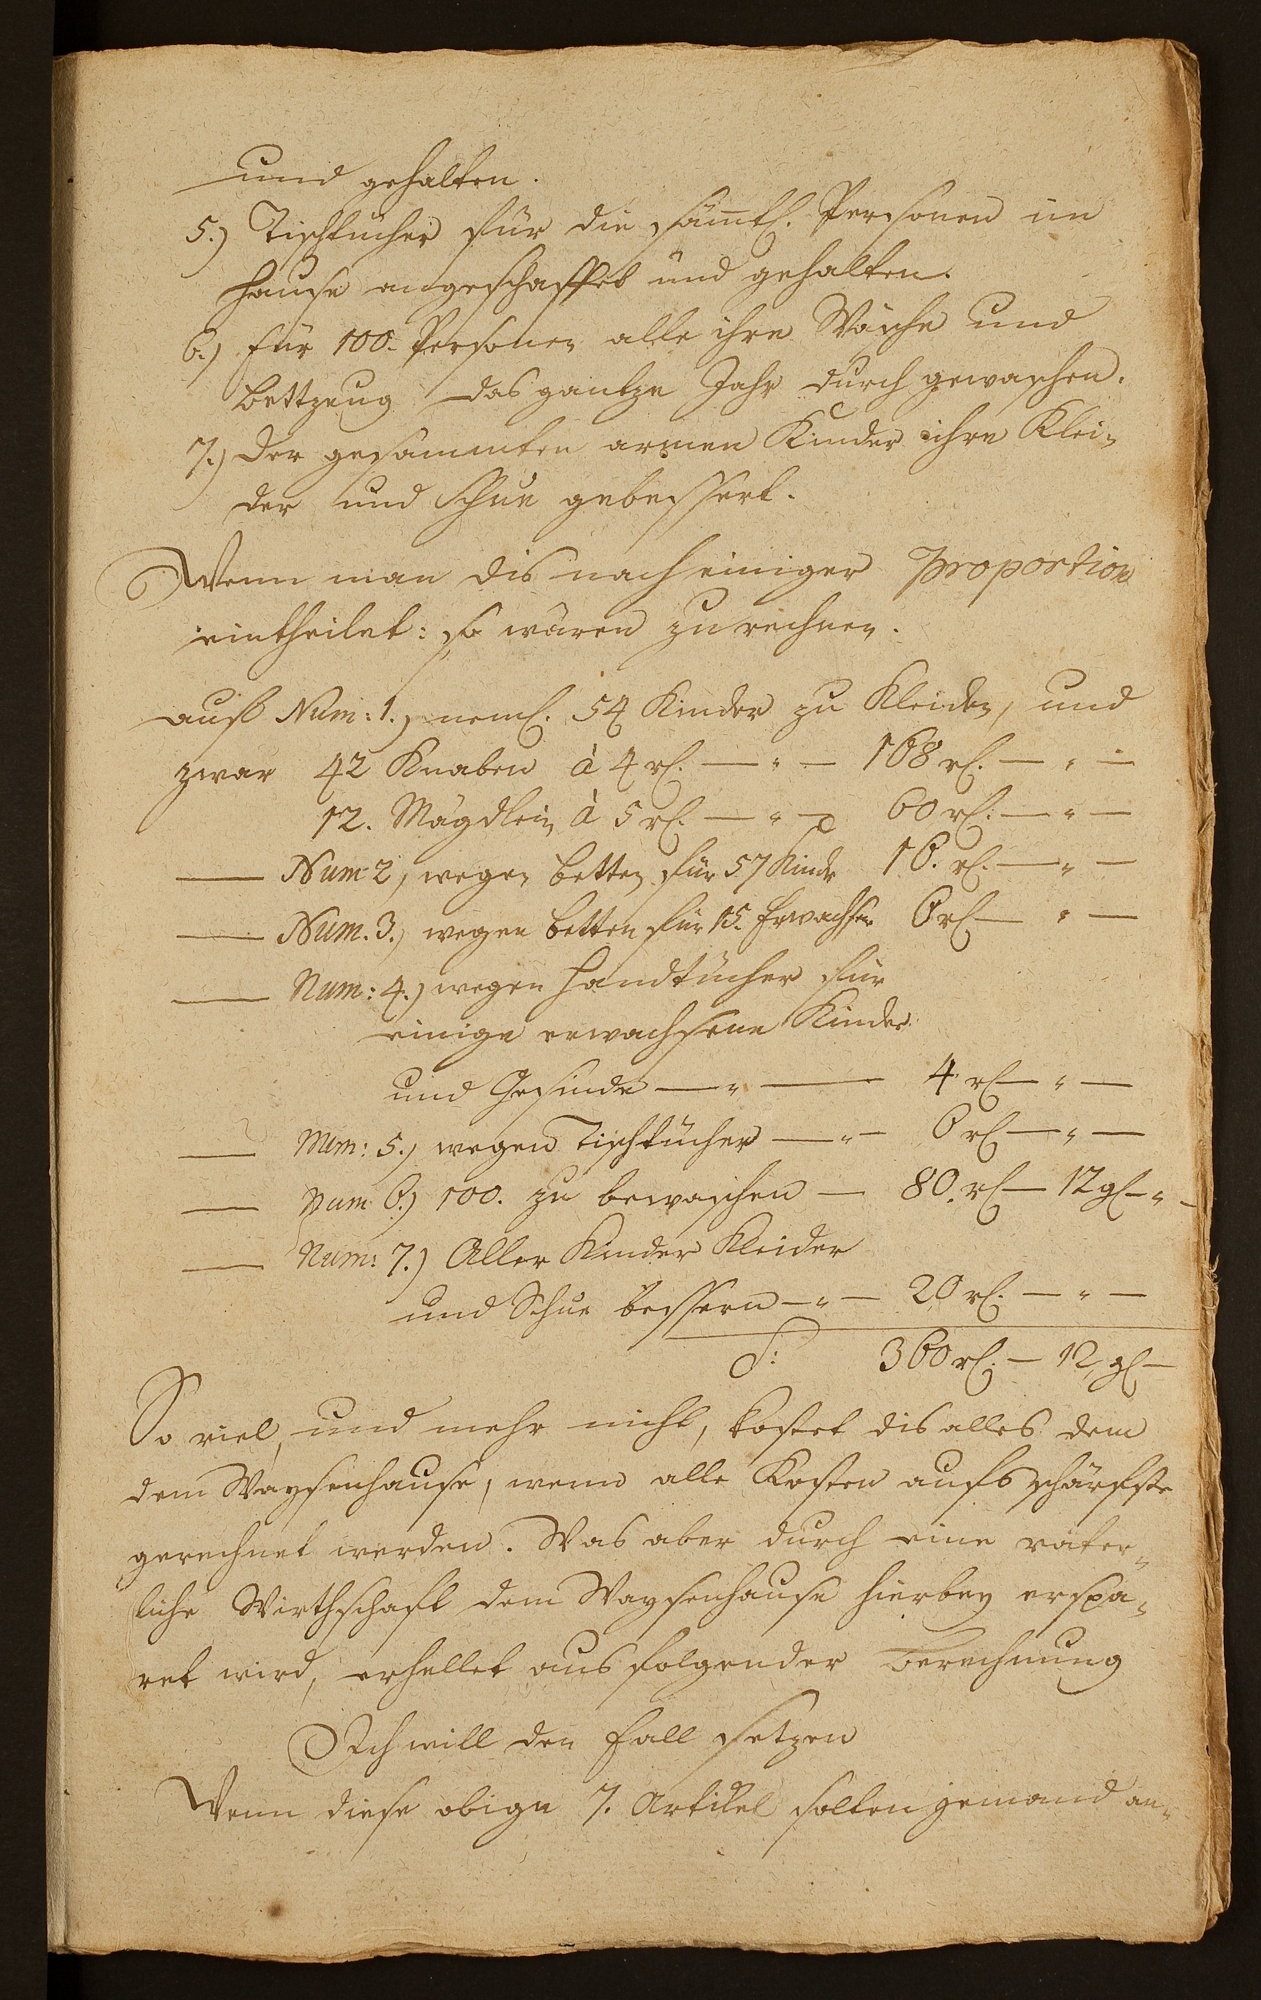 und gehalten.
5.) Tischtücher für die sämtl. Personen im
Hause angeschaffet und gehalten.
6.) für 100. Personen alle ihre Wäsche und
Bettzeug das gantze Jahr durch gewaschen.
7.) Der gesammten armen Kinder ihre Klei-
der und Schue gebessert.
Wenn man dis nach einiger Proportion
eintheilet: so wären zu rechnen.
auß Num: 1.) neml. 54 Kinder zu Kleiden, und
zwar 42 Knaben à 4 rl. — " — 168 rl. — " —
12. Mägdlein à 5 rl. — " — 60 rl. — " —
— Num 2, wegen Betten für 57 Kinder 16. rl. — " —
— Num. 3.) wegen Betten für 15. Erwachsene 6 rl — " —
— Num: 4.) wegen Handtücher für
einige erwachsene Kinder
und Gesinde — " — 4 rl — " —
— Num: 5.) wegen Tischtücher — " — 6 rl — " —
— Num 6.) 100. zu bewaschen — 80. rl — 12 gl — " —
— Num: 7.) Aller Kinder Kleider
und Schue bessern — " — 20 rl. — " —
S: 360 rl. — 12 gl —
So viel, und mehr nicht, kostet dis alles dem
dem Waysenhause, wenn alle Kosten aufs schärfste
gerechnet werden. Was aber durch eine väter-
liche Wirthschaft dem Waysenhause hierbey erspa-
ret wird, erhellet aus folgender Berechnung
Ich will den Fall setzen
Wenn diese obige 7. Artikel solten jemand an-